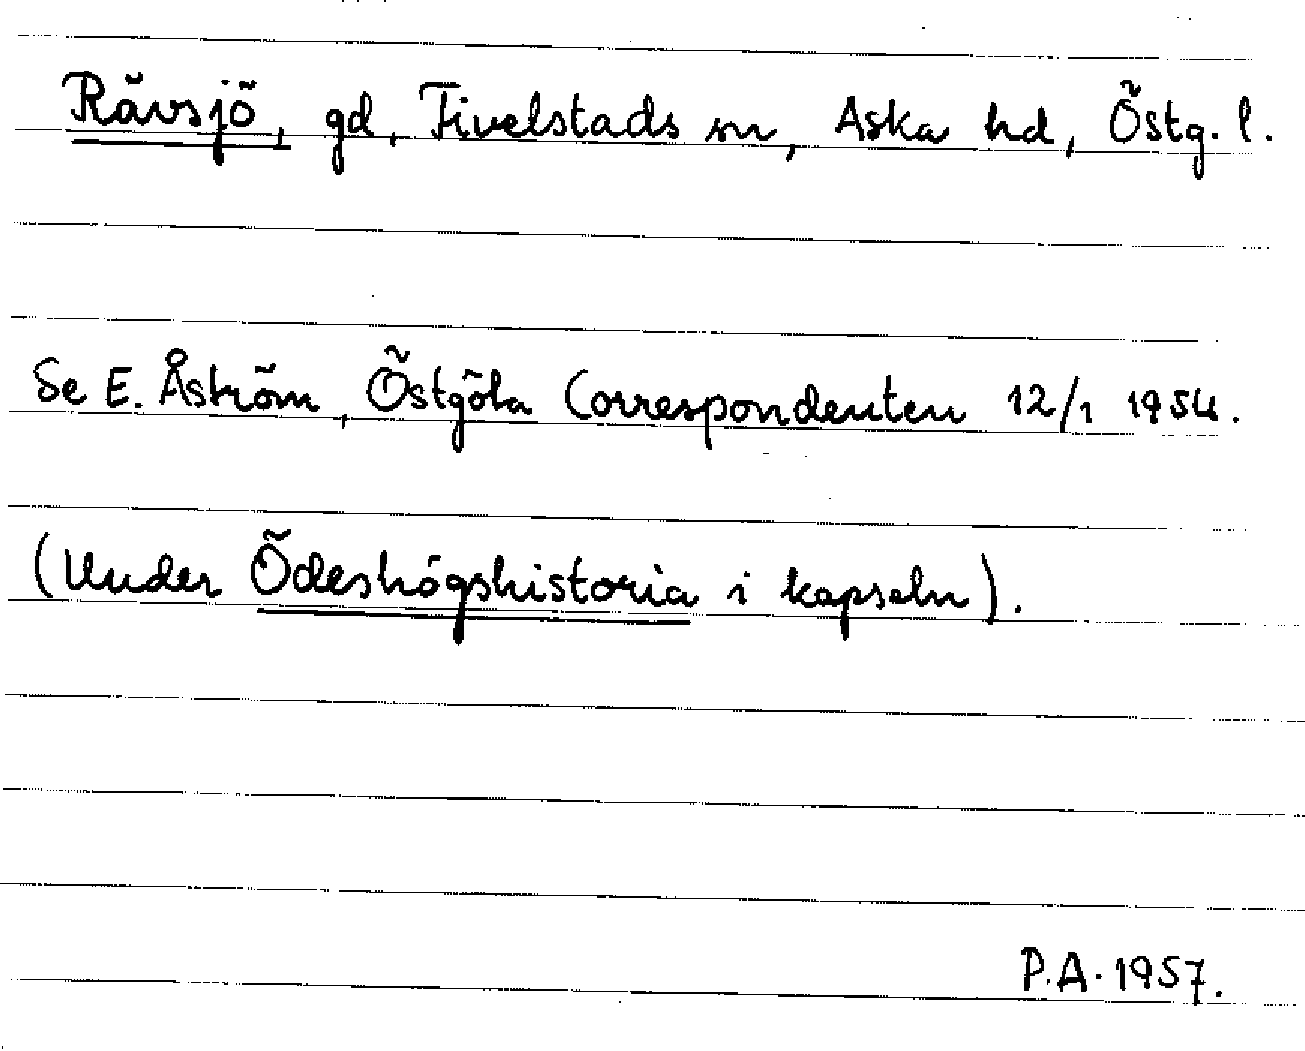 Rävsjö, gd, Fivelstads sn, Aska hd, Östg. l.
Se E. Åström, Östgöta Correspondenten 12/1 1954.
(Under Ödeshögshistoria i kapseln).
P.A. 1957.